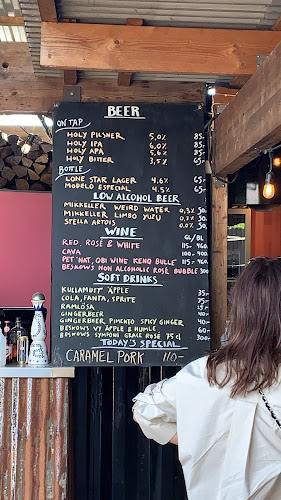 BEER
ON TAP
HOLY PILSNER 5,0% 85:-
HOLY IPA 6,0% 85:-
HOLY APA 5,6% 85:-
HOLY BITTER 3,5%
BOTTLE
LONE STAR LAGER 4,6% 65:-
MODELO ESPECIAL 4,5% 65:-
LOW ALCOHOL BEER
MIKKELLER WEIRD WATER 0,3% 50:-
MIKKELLER LIMBO YUZU
STELLA ARTOIS 0,0% 50:-
WINE
GL/BL
RED, ROSÉ & WHITE
CAVA
PET NAT, OBI WINE KENO BULLE
BESKOWS NON ALCOHOLIC ROSÉ BUBBLE 300
SOFT DRINKS
KULLAMUST ÄPPLE 35:-
COLA, FANTA, SPRITE
RAMLÖSA
GINGERBEER
GINGERBEER, PIMENTO SPICY GINGER
BESKOWS VY ÄPPLE & HUMLE
BESKOWS SYMFONI GRACE ROSE 75 cl 300
TODAY'S SPECIAL
CARAMEL PORK 110:-